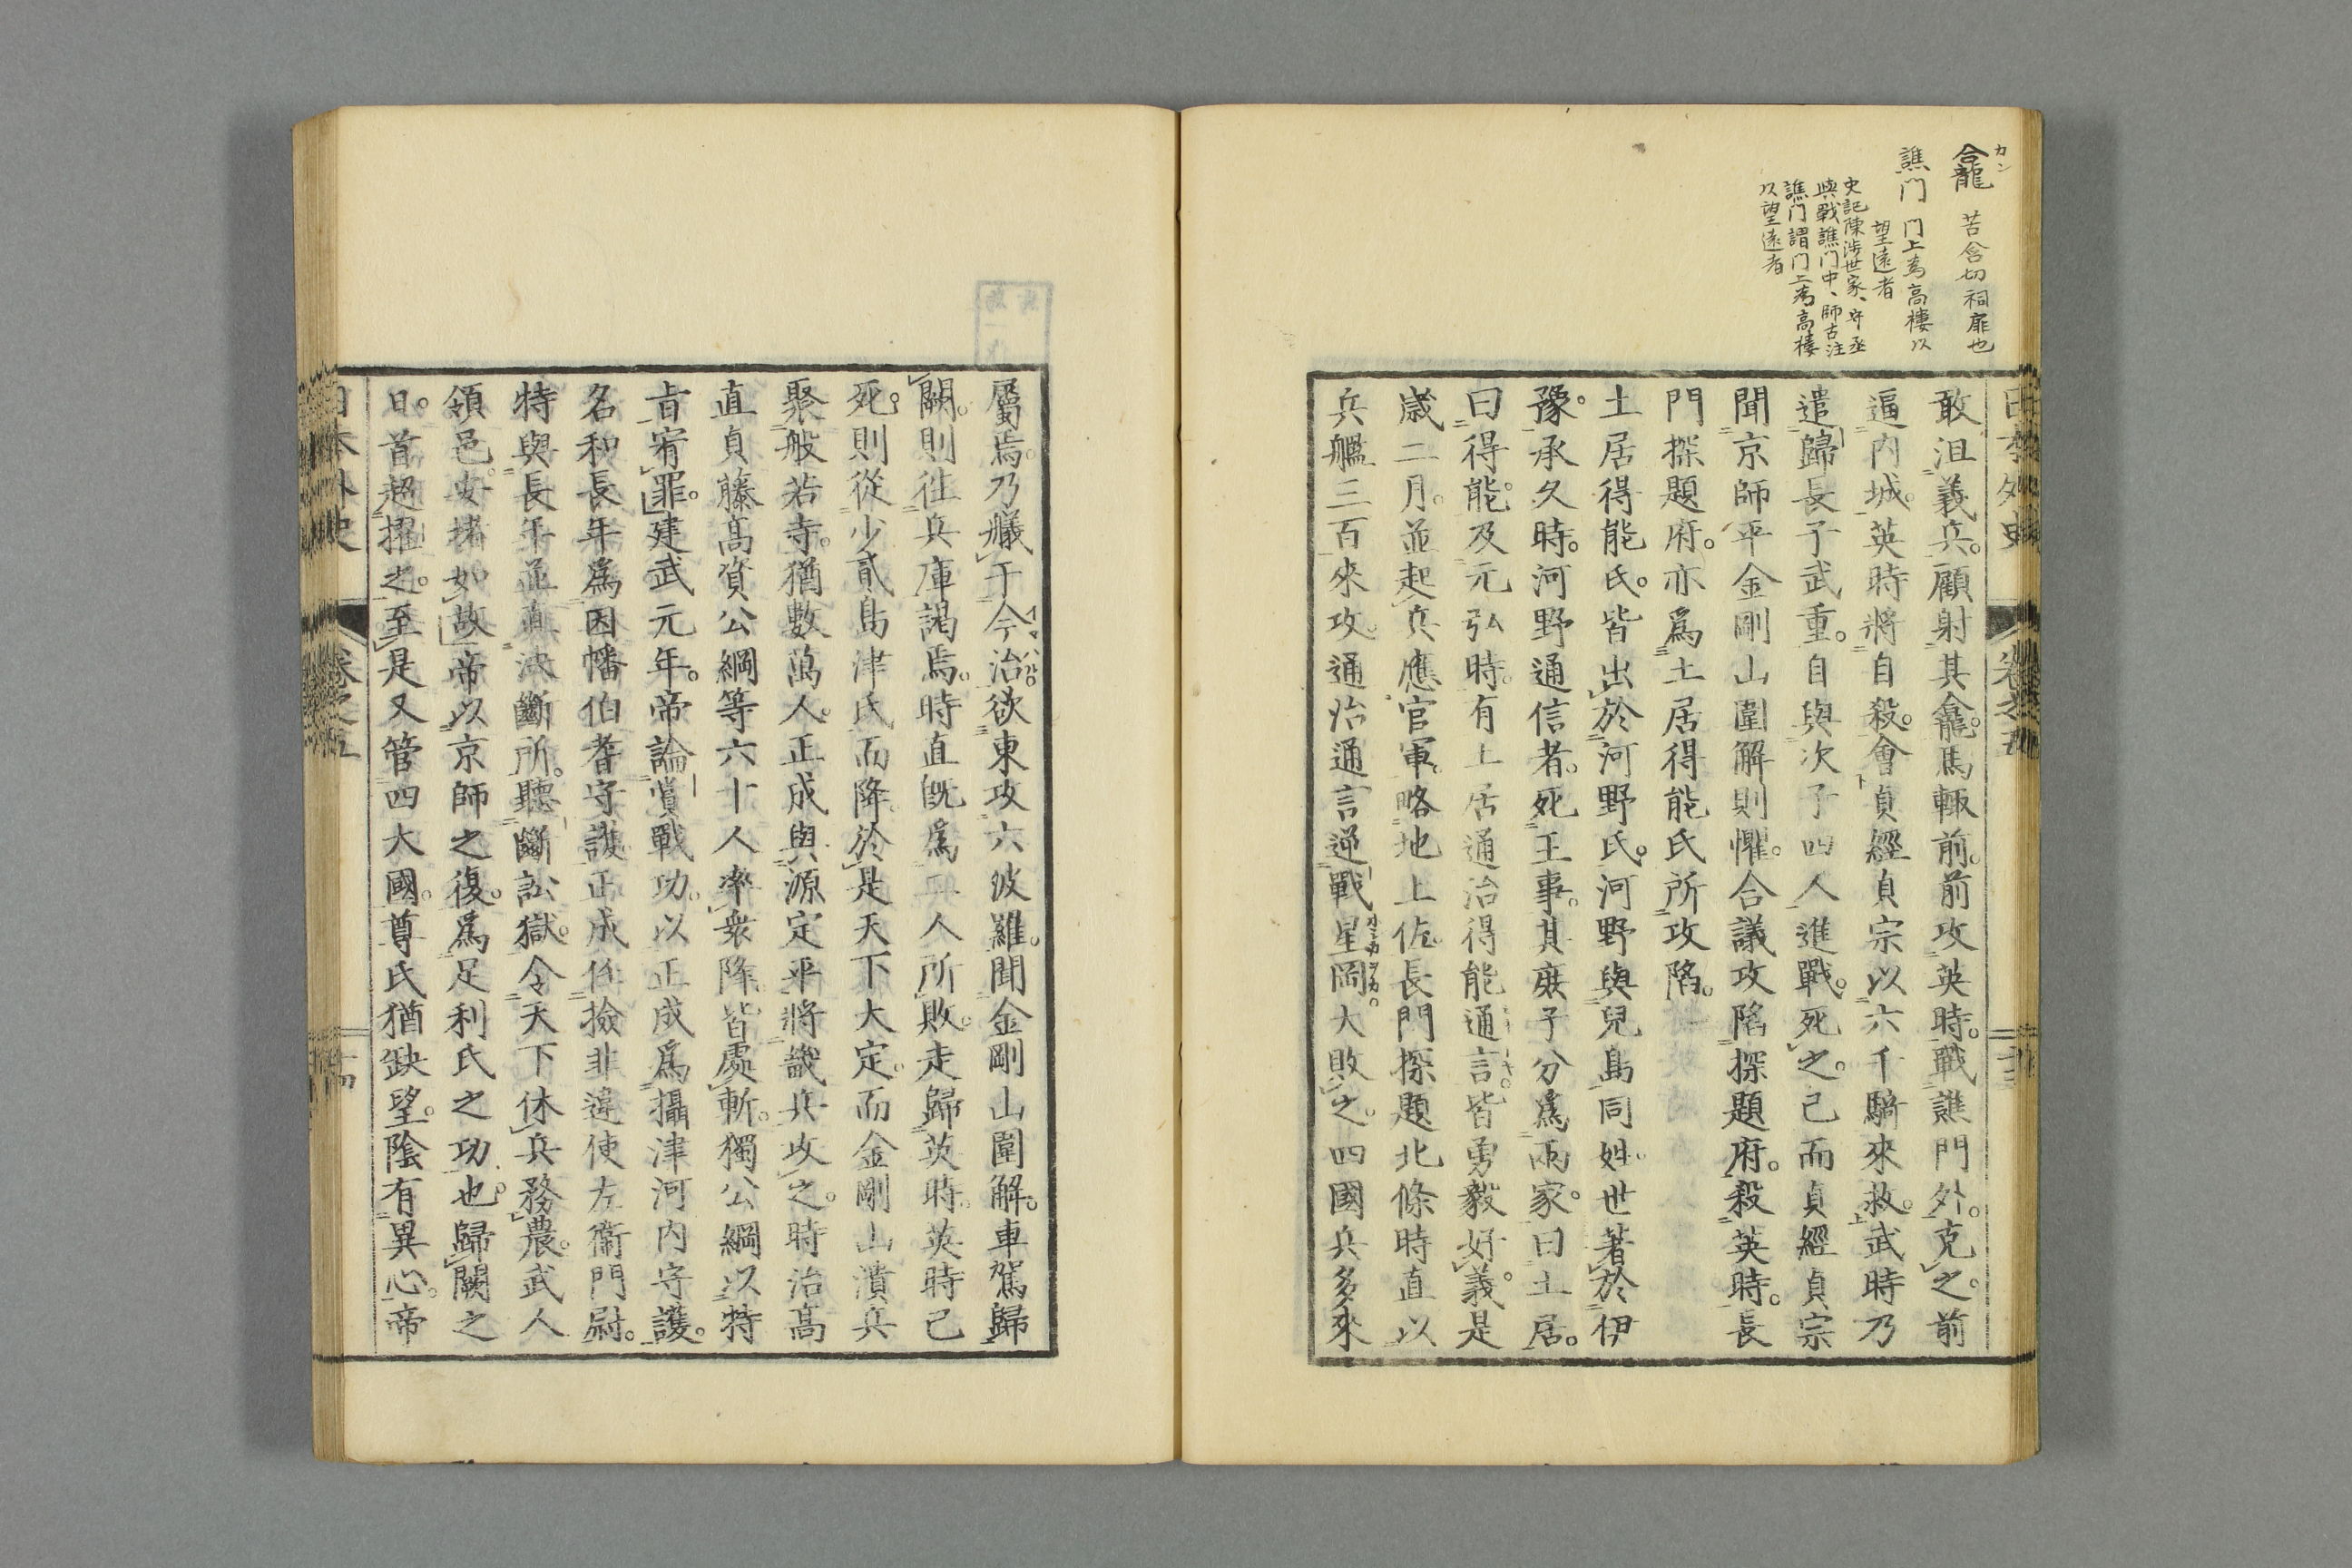 龕 苦含切祠扉也
カン
譙門 門上為高樓以
望遠者
史記陳涉世家、守丞
與戰譙門中、師古注
譙門謂門上為高樓
以望遠者
日本外史 卷之五 十三
敢沮義兵。顧射其龕。馬輙前。前攻英時。戰譙門外。克之。前
逼內城。英時將自殺。會貞經貞宗以六千騎來救。武時乃
遣歸長子武重。自與次子四人進戰。死之。已而貞經貞宗
聞京師平金剛山圍解則懼。合議攻陷探題府。殺英時。長
門探題府。亦爲土居得能氏所攻陷。
土居得能氏。皆出於河野氏。河野與兒島同姓。世著於伊
豫。承久時。河野通信者。死王事。其庶子分爲兩家。曰土居。
曰得能。及元弘時。有土居通治得能通言。皆勇毅好義。是
歲二月。並起兵應官軍。略地土佐。長門探題北條時直以
兵艦三百來攻。通治通言逆戰星岡大敗之。四國兵多來
屬焉。乃艤于今治。欲東攻六波羅。聞金剛山圍解。車駕歸
闕。則往兵庫謁焉。時直既爲二人所敗。走歸英時。英時已
死。則從少貳島津氏而降。於是天下大定。而金剛山潰兵
聚般若寺。猶數萬人。正成與源定平將畿兵攻之。時治高
直貞藤高資公綱等六十人率衆降。皆處斬。獨公綱以特
旨宥罪。建武元年。帝論賞戰功。以正成爲攝津河内守護。
名和長年爲因幡伯耆守護。正成任撿非違使左衞門尉。
特與長年並直決斷所。聽斷訟獄。令天下休兵務農。武人
領邑。安堵如故。帝以京師之復。爲足利氏之功也。歸闕之
日。首超擢之。至是又管四大國。尊氏猶缺望。陰有異心。帝
日本外史 卷之五 十四